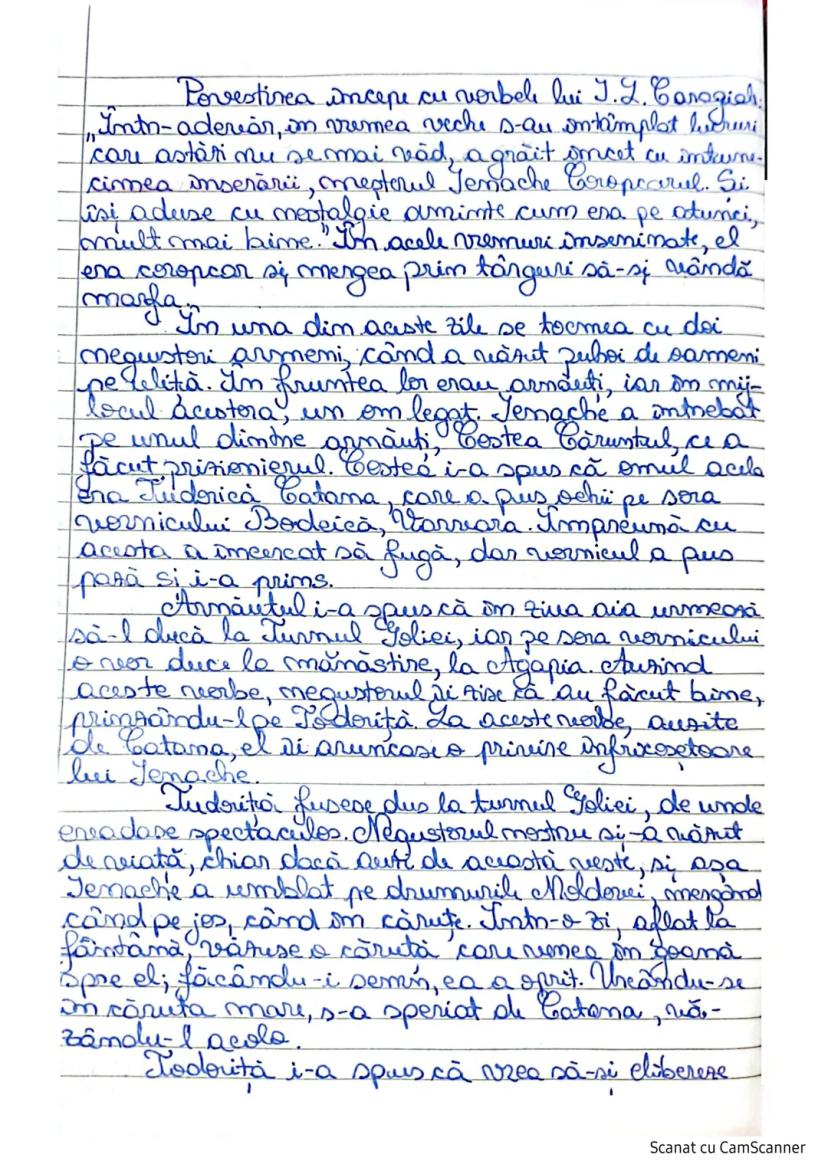 Povestirea începe cu vorbele lui I.L. Caragiale:
„Într-adevăr, în vremea veche s-au întâmplat lucruri
care astări nu se mai văd, a grăit încet cu întune-
cimea înserării, meșterul Ienache Coropcarul. Si
își aduse cu nostalgie aminte cum era pe atunci,
mult mai bine." În acele vremuri înseninate, el
era coropcar și mergea prin târguri să-și vândă
marfa.
În una din aceste zile se tocmea cu doi
negustori armeni, când a văzut puhoi de oameni
pe uliță. În fruntea lor erau arnăuți, iar în mij-
locul acestora, un om legat. Ienache a întrebat
pe unul dintre arnăuți, Costea Căruntul, ce a
făcut prizonierul. Costea i-a spus că omul acela
era Tudorică Catana, care a pus ochii pe sora
vornicului Bodeică, Varvara. Împreună cu
acesta a încercat să fugă, dar vornicul a pus
pază si i-a prins.
Arnăutul i-a spus că în ziua aia urmează
să-l ducă la Turnul Goliei, iar pe sora vornicului
o vor duce la mănăstire, la Agapia. Auzind
aceste vorbe, negustorul îi zise că au făcut bine,
prinzându-l pe Todoriță. La aceste vorbe, auzite
de Catana, el îi aruncase o privire înfricoșetoare
lui Ienache.
Tudoriță fusese dus la turnul Goliei, de unde
evadase spectaculos. Negustorul nostru si-a văzut
de viață, chiar dacă auzi de această veste, și așa
Ienache a umblat pe drumurile Moldovei, mergând
când pe jos, când în căruțe. Într-o zi, aflat la
fântână, văzuse o căruță care venea în goană
spre el; făcându-i semn, ea a oprit. Urcându-se
în căruța mare, s-a speriat de Catana, vă-
zându-l acolo.
Todoriță i-a spus că vrea să-și elibereze
Scanat cu CamScanner